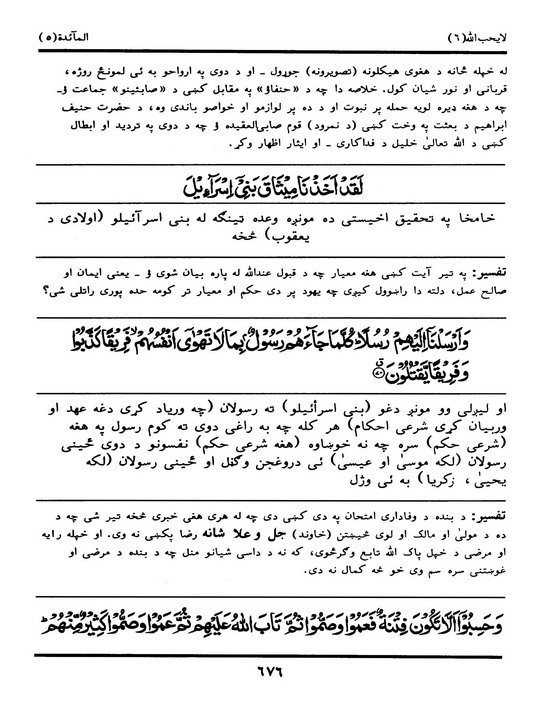 لايحب الله (٦) المآئدة (٥)
له خپله ځانه د هغوی هيکلونه (تصويرونه) جوړول ـ او د دوی په ارواحو به ئی لمونځ روژه،
قربانی او نور شيان کول. خلاصه دا چه د «حنفاؤ» په مقابل کښی د «صابئينو» جماعت ؤـ
چه د هغه ډيره لويه حمله پر نبوت او د ده پر لوازمو او خواصو باندی وه، د حضرت حنيف
ابراهيم د بعثت په وخت کښی (د نمرود) قوم صابی‌العقيده ؤ چه د دوی په ترديد او ابطال
کښی د الله تعالیٰ خليل د فداکاری ـ او ايثار اظهار وکړ.
لَقَدْ اَخَذْنَا مِيْثَاقَ بَنِیْٓ اِسْرَآءِيْلَ
خامخا په تحقيق اخيستی ده مونږه وعده ټينگه له بنی اسرآئيلو (اولادی د
يعقوب) څخه
تفسير: په تير آيت کښی هغه معيار چه د قبول عندالله له پاره بيان شوی ؤ ـ يعنی ايمان او
صالح عمل، دلته دا راښوول کيږی چه يهود پر دی حکم او معيار تر کومه حده پوری راتلی شی؟
وَاَرْسَلْنَآ اِلَيْهِمْ رُسُلًا ؕ كُلَّمَا جَآءَهُمْ رَسُوْلٌۢ بِمَا لَا تَهْوٰٓی اَنْفُسُهُمْ ۙ فَرِيْقًا كَذَّبُوْا
وَفَرِيْقًا يَّقْتُلُوْنَ ۝۷۰
او ليږلی وو مونږ دغو (بنی اسرآئيلو) ته رسولان (چه ورياد کړی دغه عهد او
وربيان کړی شرعی احکام) هر کله چه به راغی دوی ته کوم رسول په هغه
(شرعی حکم) سره چه نه خوښاوه (هغه شرعی حکم) نفسونو د دوی ځينی
رسولان (لکه موسیٰ او عيسیٰ) ئی دروغجن وگڼل او ځينی رسولان (لکه
يحيیٰ، زکريا) به ئی وژل
تفسير: د بنده د وفاداری امتحان په دی کښی دی چه له هری هغی خبری څخه تير شی چه د
ده د مولیٰ او مالک او لوی څيښتن (خاوند) جل و علا شانه رضا پکښی نه وی. او خپله رايه
او مرضی د خپل پاک الله تابع وگرځوی، که نه د داسی شيانو منل چه د بنده د مرضی او
غوښتنی سره سم وی خو څه کمال نه دی.
وَحَسِبُوْٓا اَلَّا تَكُوْنَ فِتْنَةٌ فَعَمُوْا وَصَمُّوْا ثُمَّ تَابَ اللهُ عَلَيْهِمْ ثُمَّ عَمُوْا وَصَمُّوْا كَثِيْرٌ مِّنْهُمْ ؕ
٦٧٦